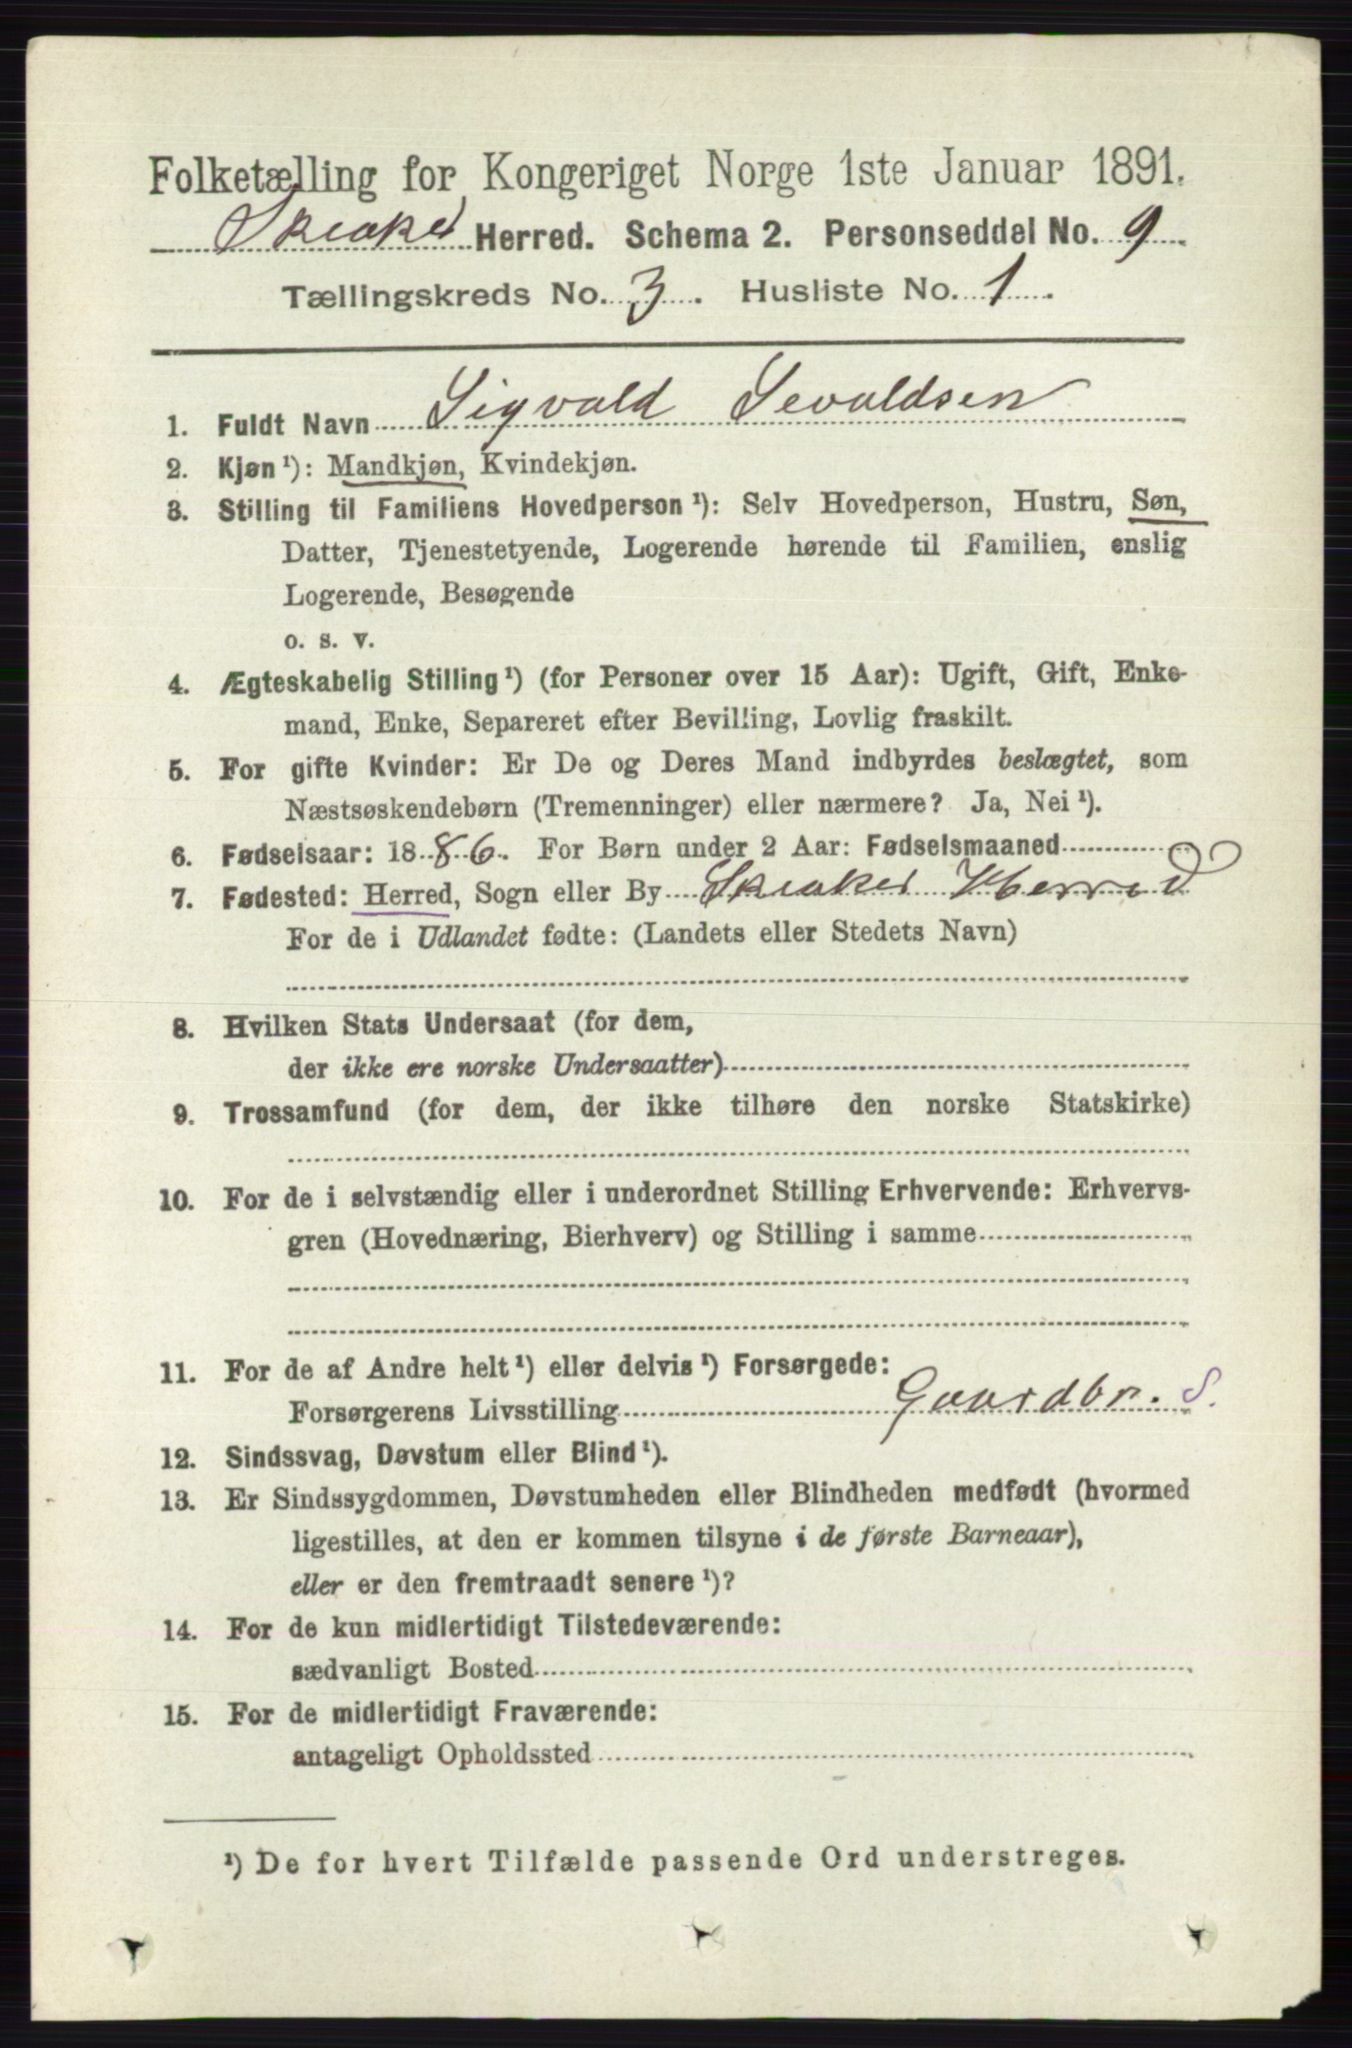 Folketælling for Kongeriget Norge 1ste Januar 1891.
Skiaker Herred. Schema 2. Personseddel No. 9
Tællingskreds No. 3. Husliste No. 1.
1. Fuldt Navn Sigvald Sevaldsen
2. Kjøn¹): Mandkjøn, Kvindekjøn.
3. Stilling til Familiens Hovedperson¹): Selv Hovedperson, Hustru, Søn,
Datter, Tjenestetyende, Logerende hørende til Familien, enslig
Logerende, Besøgende
o. s. v.
4. Ægteskabelig Stilling¹) (for Personer over 15 Aar): Ugift, Gift, Enke-
mand, Enke, Separeret efter Bevilling, Lovlig fraskilt.
5. For gifte Kvinder: Er De og Deres Mand indbyrdes beslægtet, som
Næstsøskendebørn (Tremenninger) eller nærmere? Ja, Nei¹).
6. Fødselsaar: 1886. For Børn under 2 Aar: Fødselsmaaned
7. Fødested: Herred, Sogn eller By Skiaker Herred
For de i Udlandet fødte: (Landets eller Stedets Navn)
8. Hvilken Stats Undersaat (for dem,
der ikke ere norske Undersaatter)
9. Trossamfund (for dem, der ikke tilhøre den norske Statskirke)
10. For de i selvstændig eller i underordnet Stilling Erhvervende: Erhvervs-
gren (Hovednæring, Bierhverv) og Stilling i samme
11. For de af Andre helt¹) eller delvis¹) Forsørgede:
Forsørgerens Livsstilling Gaardbr. S.
12. Sindssvag, Døvstum eller Blind¹).
13. Er Sindssygdommen, Døvstumheden eller Blindheden medfødt (hvormed
ligestilles, at den er kommen tilsyne i de første Barneaar),
eller er den fremtraadt senere¹)?
14. For de kun midlertidigt Tilstedeværende:
sædvanligt Bosted
15. For de midlertidigt Fraværende:
antageligt Opholdssted
¹) De for hvert Tilfælde passende Ord understreges.